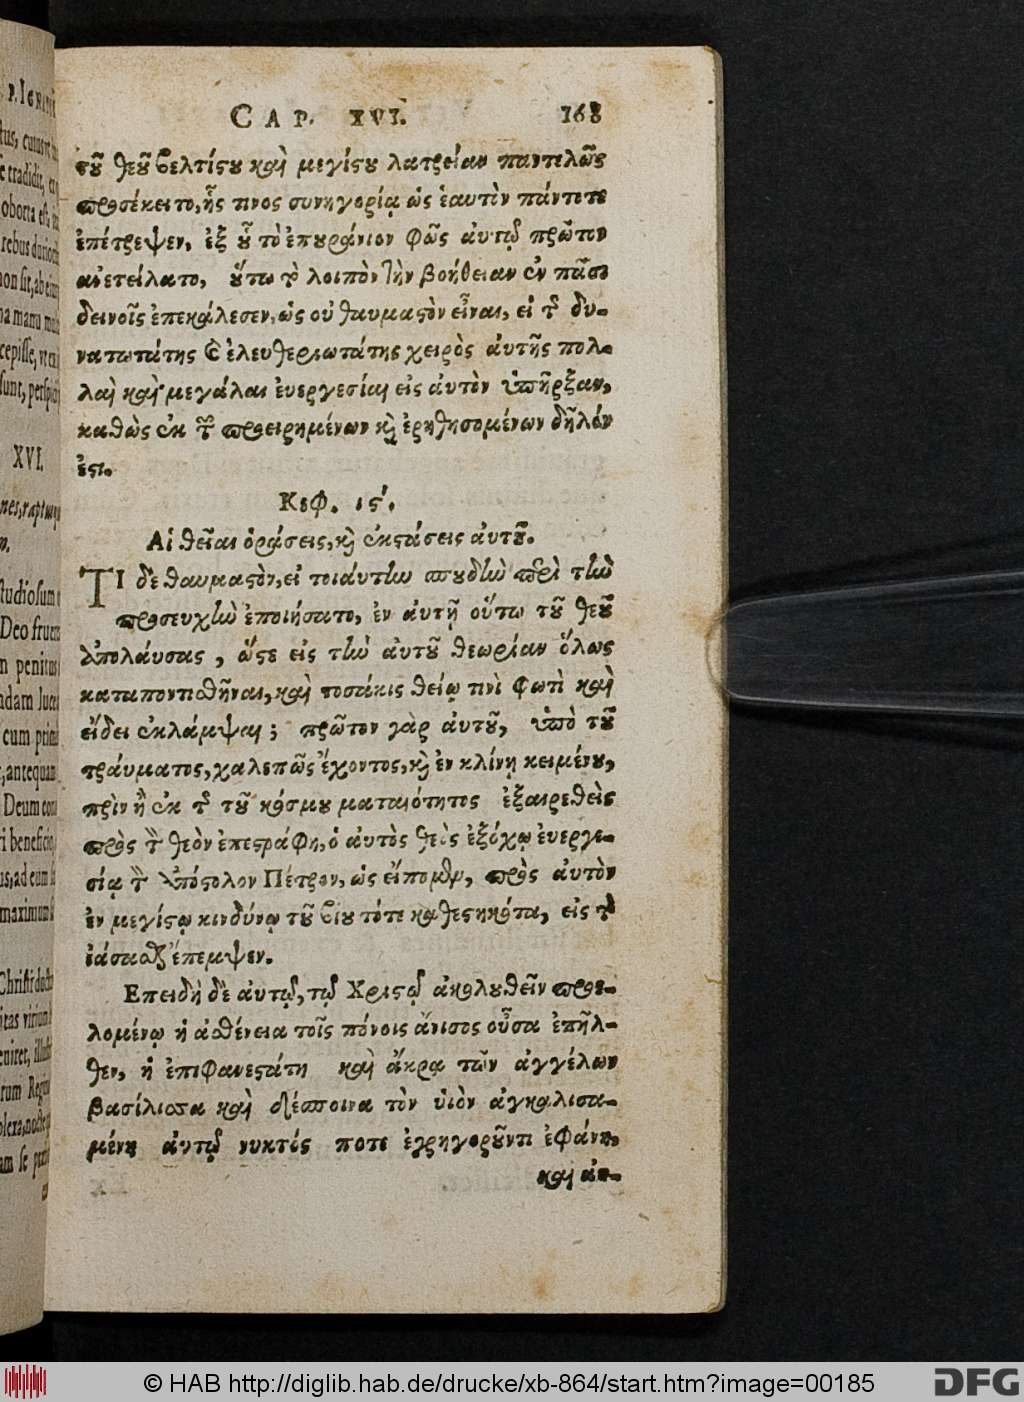 P. IGNATII
XVI.
CAP. XVI. 168
τοῦ θεοῦ βελτίστου καὶ μεγίστου λατρείαν παντελῶς
προσέκειτο, ἧς τινος συνηγορίᾳ ὡς ἑαυτὸν πάντοτε
ἐπέτρεψεν, ἐξ οὗ τὸ ἐπουράνιον φῶς αὐτῷ πρῶτον
ἀνετείλατο, οὕτω τὸ λοιπὸν τὴν βοήθειαν ἐν πᾶσι
δεινοῖς ἐπεκάλεσεν, ὡς οὐ θαυμαστὸν εἶναι, εἰ τῆς δυ-
νατωτάτης καὶ ἐλευθεριωτάτης χειρὸς αὐτῆς πολ-
λαὶ καὶ μεγάλαι ἐυεργεσίαι εἰς αὐτὸν ὑπῆρξαν,
καθὼς ἐκ τῶν προειρημένων καὶ ἐρηθησομένων δῆλόν
ἐστι.
Κεφ. ις΄.
Αἱ θεῖαι ὁράσεις, καὶ ἐκστάσεις αὐτοῦ.
ΤΙ δὲ θαυμαστὸν, εἰ τοιάυτην σπουδὴν περὶ τὴν
προσευχὴν ἐποιήσατο, ἐν αὐτῇ οὕτω τοῦ θεοῦ
ἀπολάυσας, ὥστε εἰς τὴν αὐτοῦ θεωρίαν ὅλως
καταποντισθῆναι, καὶ τοσάκις θείῳ τινὶ φωτὶ καὶ
εἴδει ἐκλάμψαι; πρῶτον γὰρ αὐτοῦ, ὑπὸ τοῦ
τράυματος, χαλεπῶς ἔχοντος, καὶ ἐν κλίνῃ κειμένου,
πρὶν ἢ ἐκ τῆς τοῦ κόσμου ματαιότητος ἐξαιρεθεὶς
πρὸς τὸν θεὸν ἐπεστράφη, ὁ αὐτὸς θεὸς ἐξόχῳ ἐυεργε-
σίᾳ τὸν Ἀπόστολον Πέτρον, ὡς εἴπομεν, πρὸς αὐτὸν
ἐν μεγίστῳ κινδύνῳ τοῦ βίου τότε καθεστηκότα, εἰς τὸ
ἰάσασθαι ἔπεμψεν.
Ἐπειδὴ δὲ αὐτῷ, τῷ Χριστῷ ἀκολουθεῖν προε-
λομένῳ ἡ ἀσθένεια τοῖς πόνοις ἄνισος οὖσα ἐπῆλ-
θεν, ἡ ἐπιφανεστάτη καὶ ἄκρα τῶν ἀγγέλων
βασίλισσα καὶ δέσποινα τὸν υἱὸν ἀγκαλισα-
μένη αὐτῷ νυκτός ποτε ἐγρηγοροῦντι ἐφάνη,
καὶ ἀπ-
© HAB http://diglib.hab.de/drucke/xb-864/start.htm?image=00185
DFG